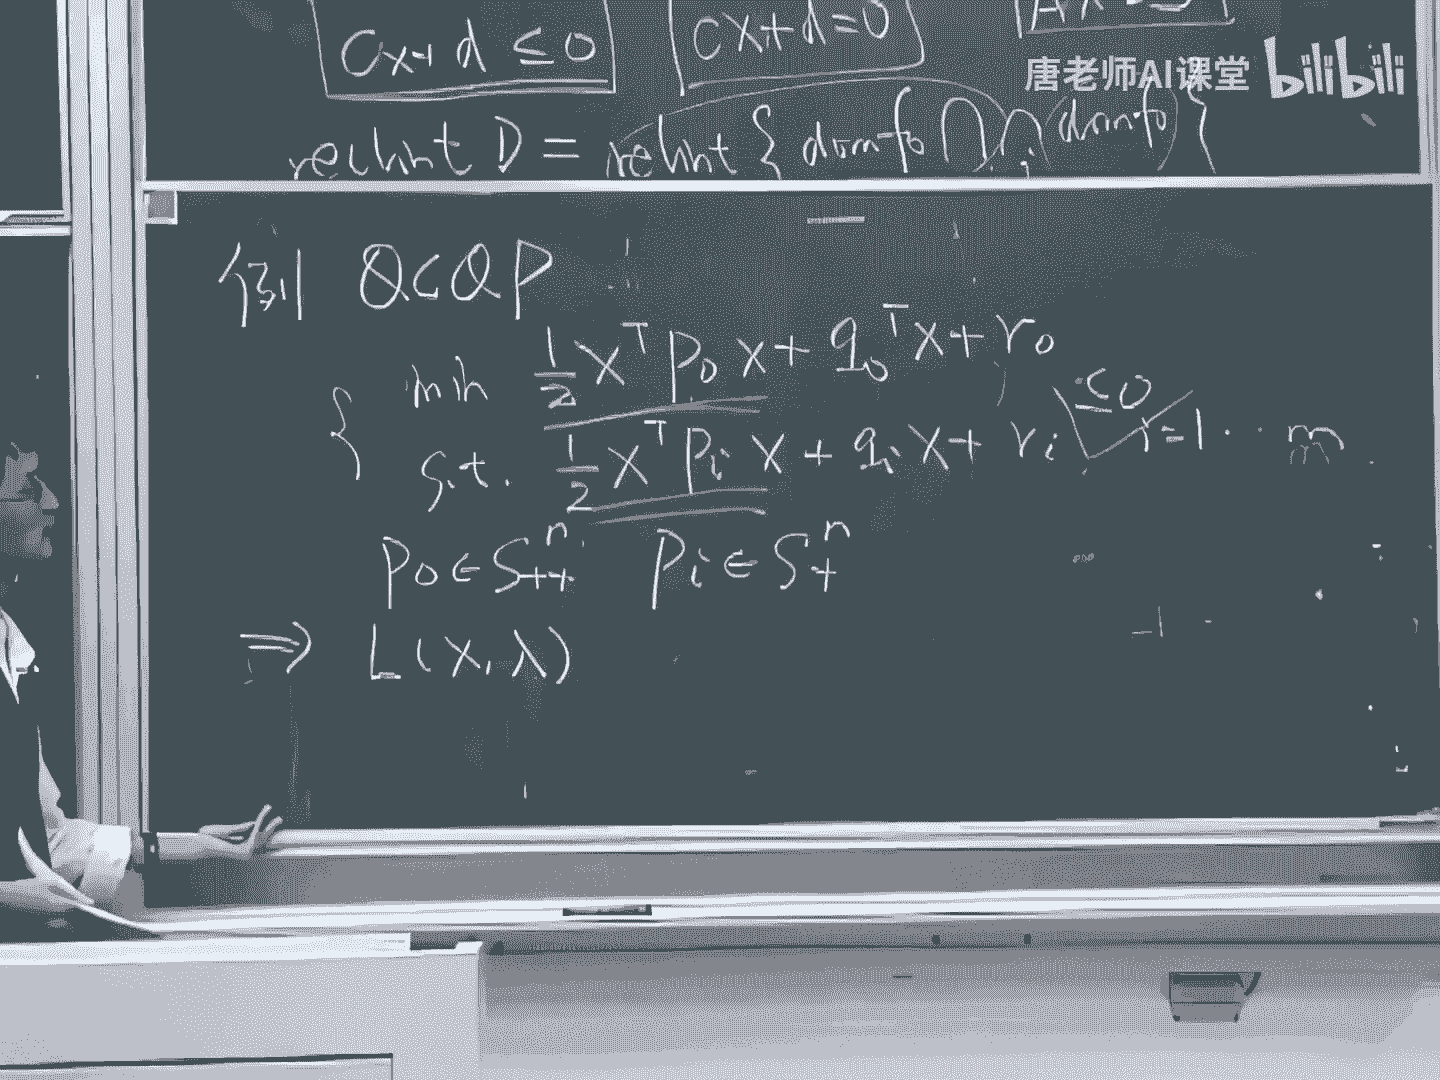 Cx+d ≤ 0 CX+d=0
唐老师AI课堂 bilibili
relint D = relint { domf₀ ⋂ ⋂ᵢ domf₀ }
例 QCQP
min ½ xᵀ P₀ x + q₀ᵀ x + r₀
s.t. ½ xᵀ Pᵢ x + qᵢ x + rᵢ ≤0 i=1 · · m
P₀ ∈ S₊₊ⁿ Pᵢ ∈ S₊ⁿ
⇒ L(x, λ)